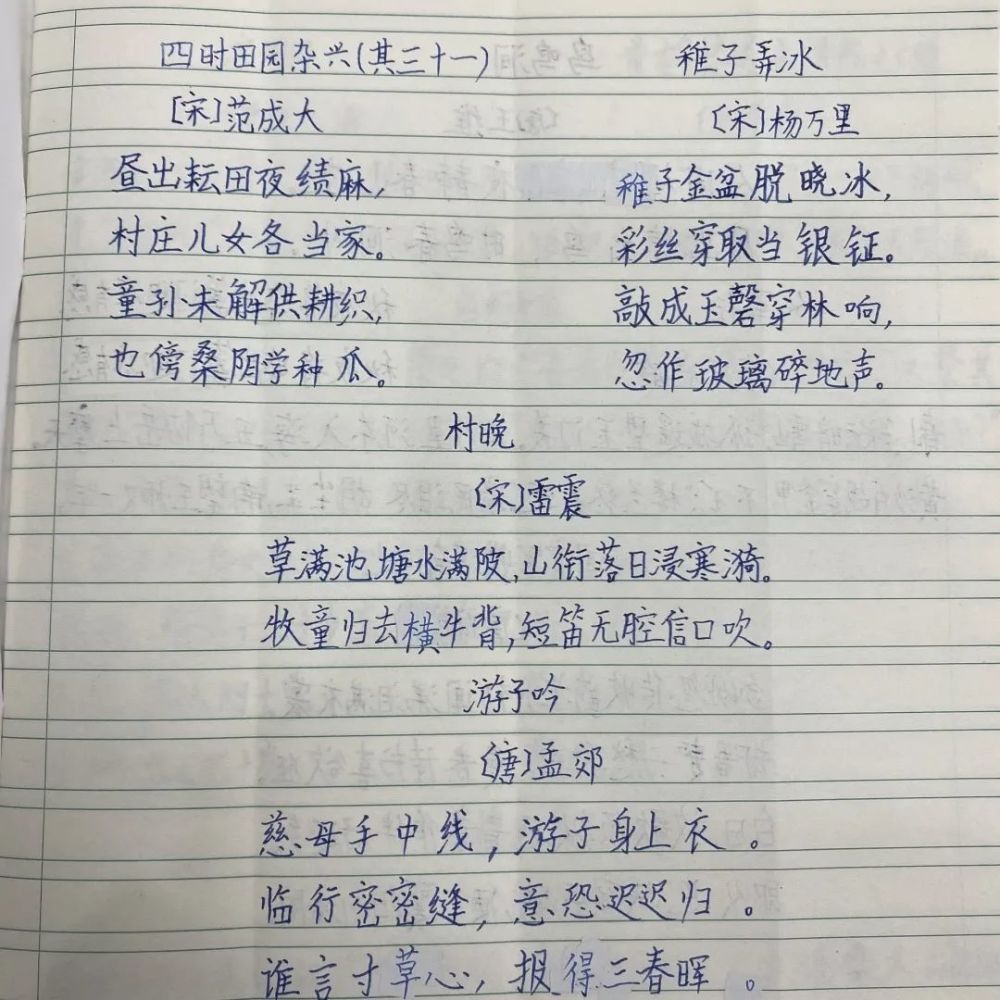 四时田园杂兴(其三十一)
[宋]范成大
昼出耘田夜绩麻,
村庄儿女各当家。
童孙未解供耕织,
也傍桑阴学种瓜。
稚子弄冰
[宋]杨万里
稚子金盆脱晓冰,
彩丝穿取当银钲。
敲成玉磬穿林响,
忽作玻璃碎地声。
村晚
[宋]雷震
草满池塘水满陂,山衔落日浸寒漪。
牧童归去横牛背,短笛无腔信口吹。
游子吟
[唐]孟郊
慈母手中线,游子身上衣。
临行密密缝,意恐迟迟归。
谁言寸草心,报得三春晖。